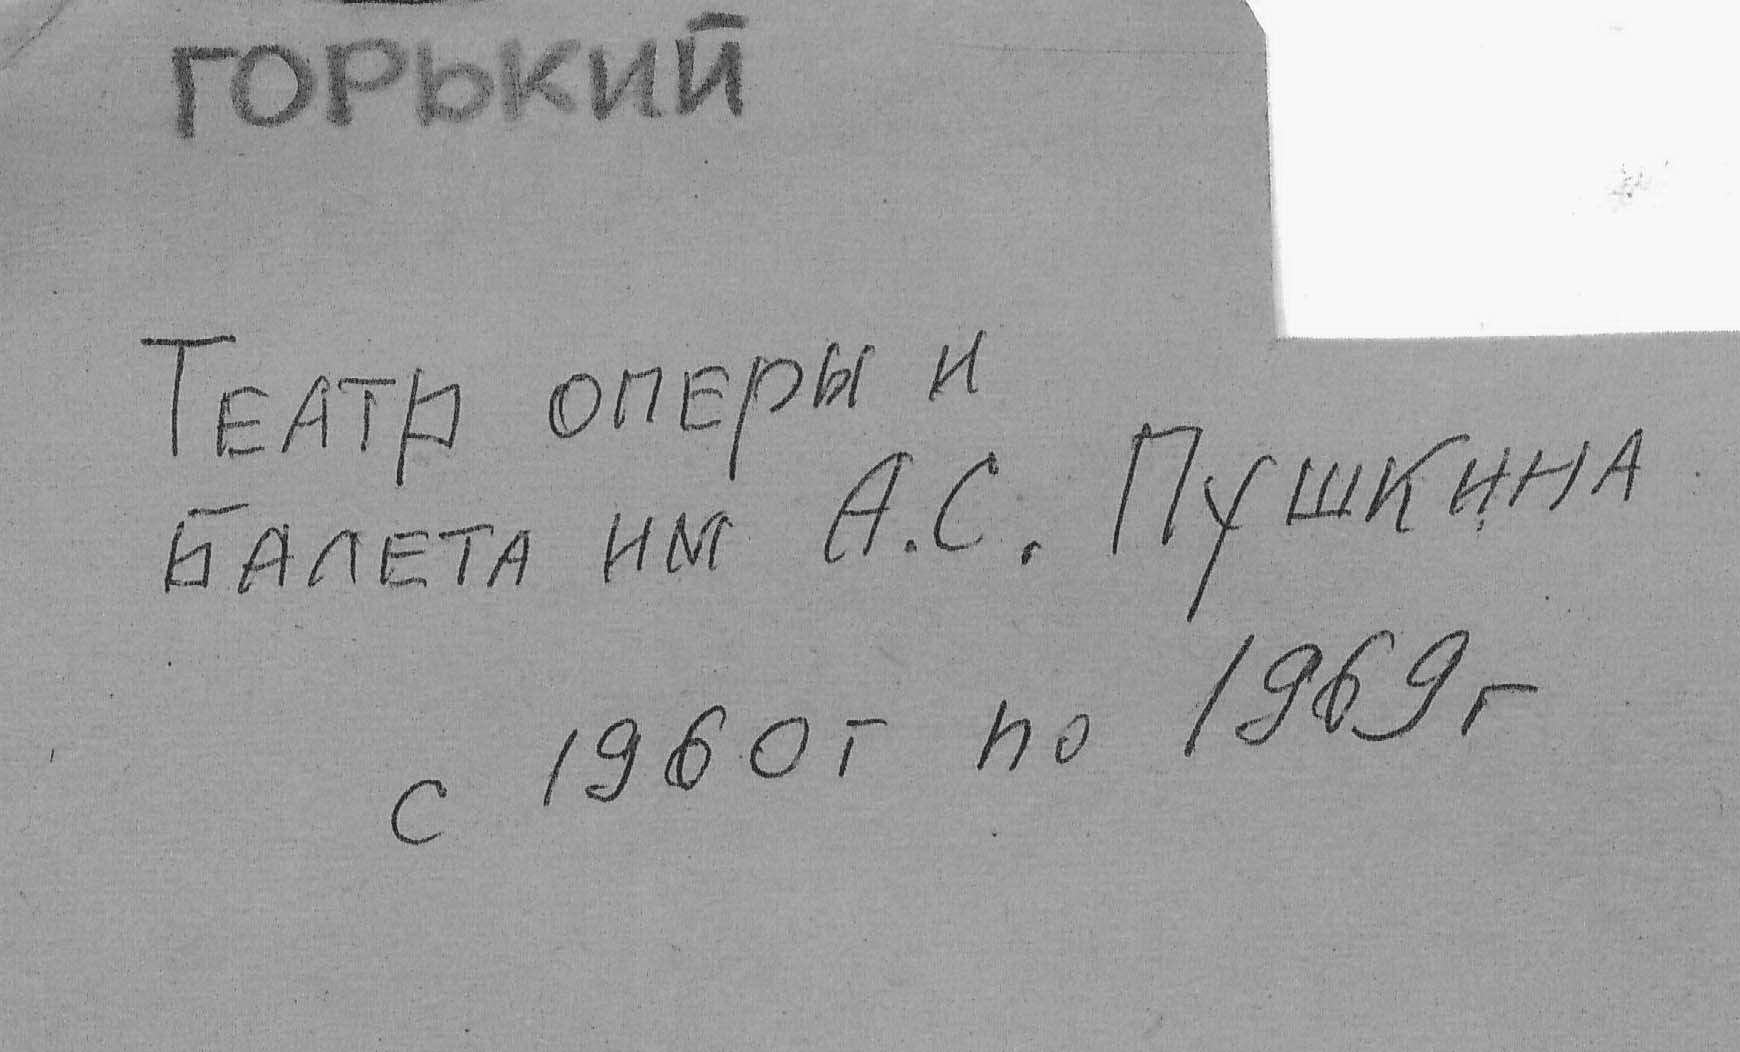 ГОРЬКИЙ
Театр оперы и
балета им А.С. Пушкина
с 1960г по 1969г